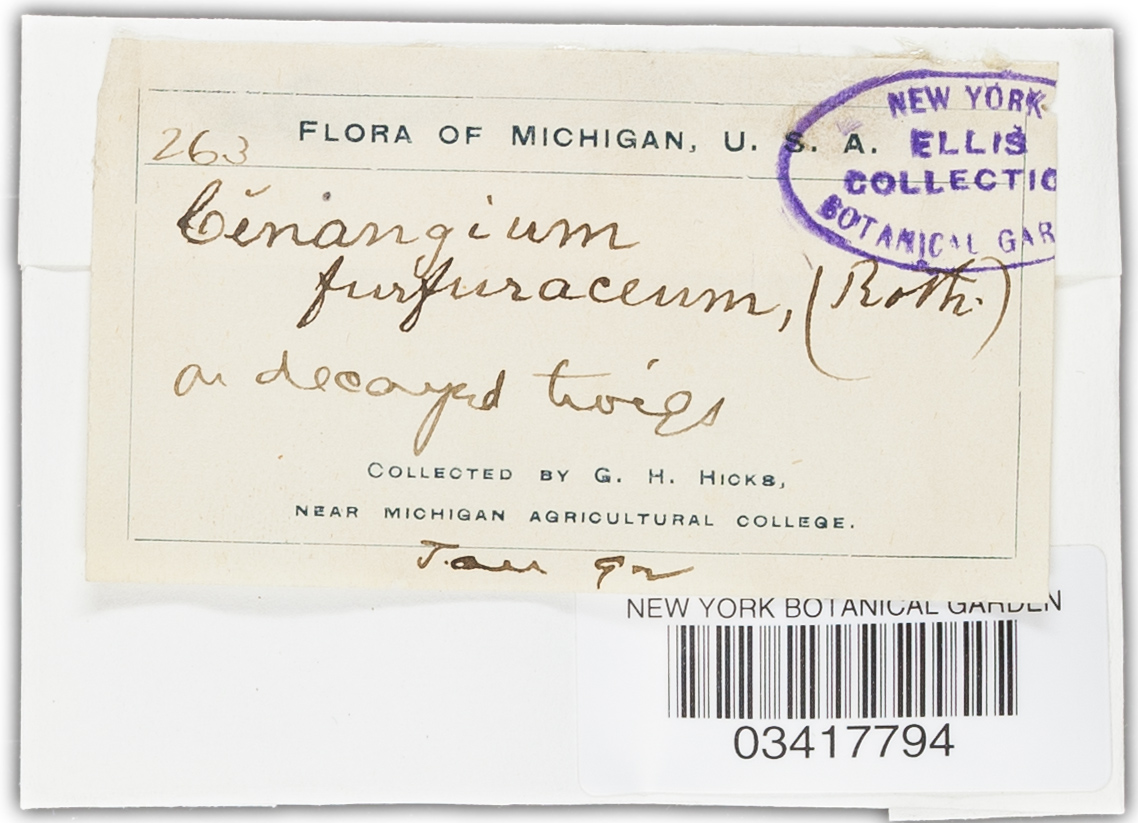 263
FLORA OF MICHIGAN, U. S. A.
NEW YORK
ELLIS
COLLECTIO
BOTANICAL GAR
Cenangium
furfuraceum, (Roth.)
on decayed twigs
COLLECTED BY G. H. HICKS,
NEAR MICHIGAN AGRICULTURAL COLLEGE.
Jan 92
NEW YORK BOTANICAL GARDEN
03417794